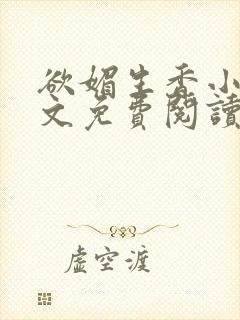 欲媚生香小
文免費閱讀
虛空渡